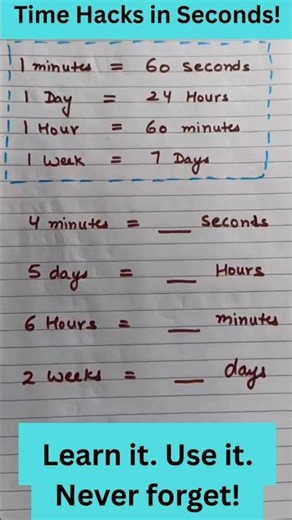 Time Hacks in Seconds!
1 minutes = 60 seconds
1 Day = 24 Hours
1 Hour = 60 minutes
1 Week = 7 Days
4 minutes = __ Seconds
5 days = __ Hours
6 Hours = __ minutes
2 weeks = __ days
Learn it. Use it.
Never forget!